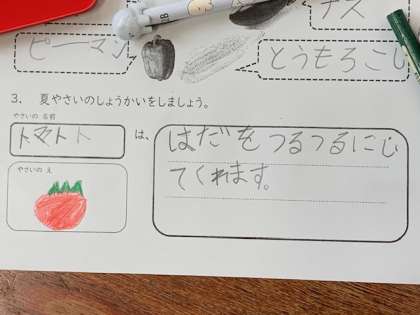 ナス
ピーマン
とうもろこし
3. 夏やさいのしょうかいをしましょう。
やさいの 名前
トマト ト
は、
はだを つるつるにし
てくれます。
やさいの え